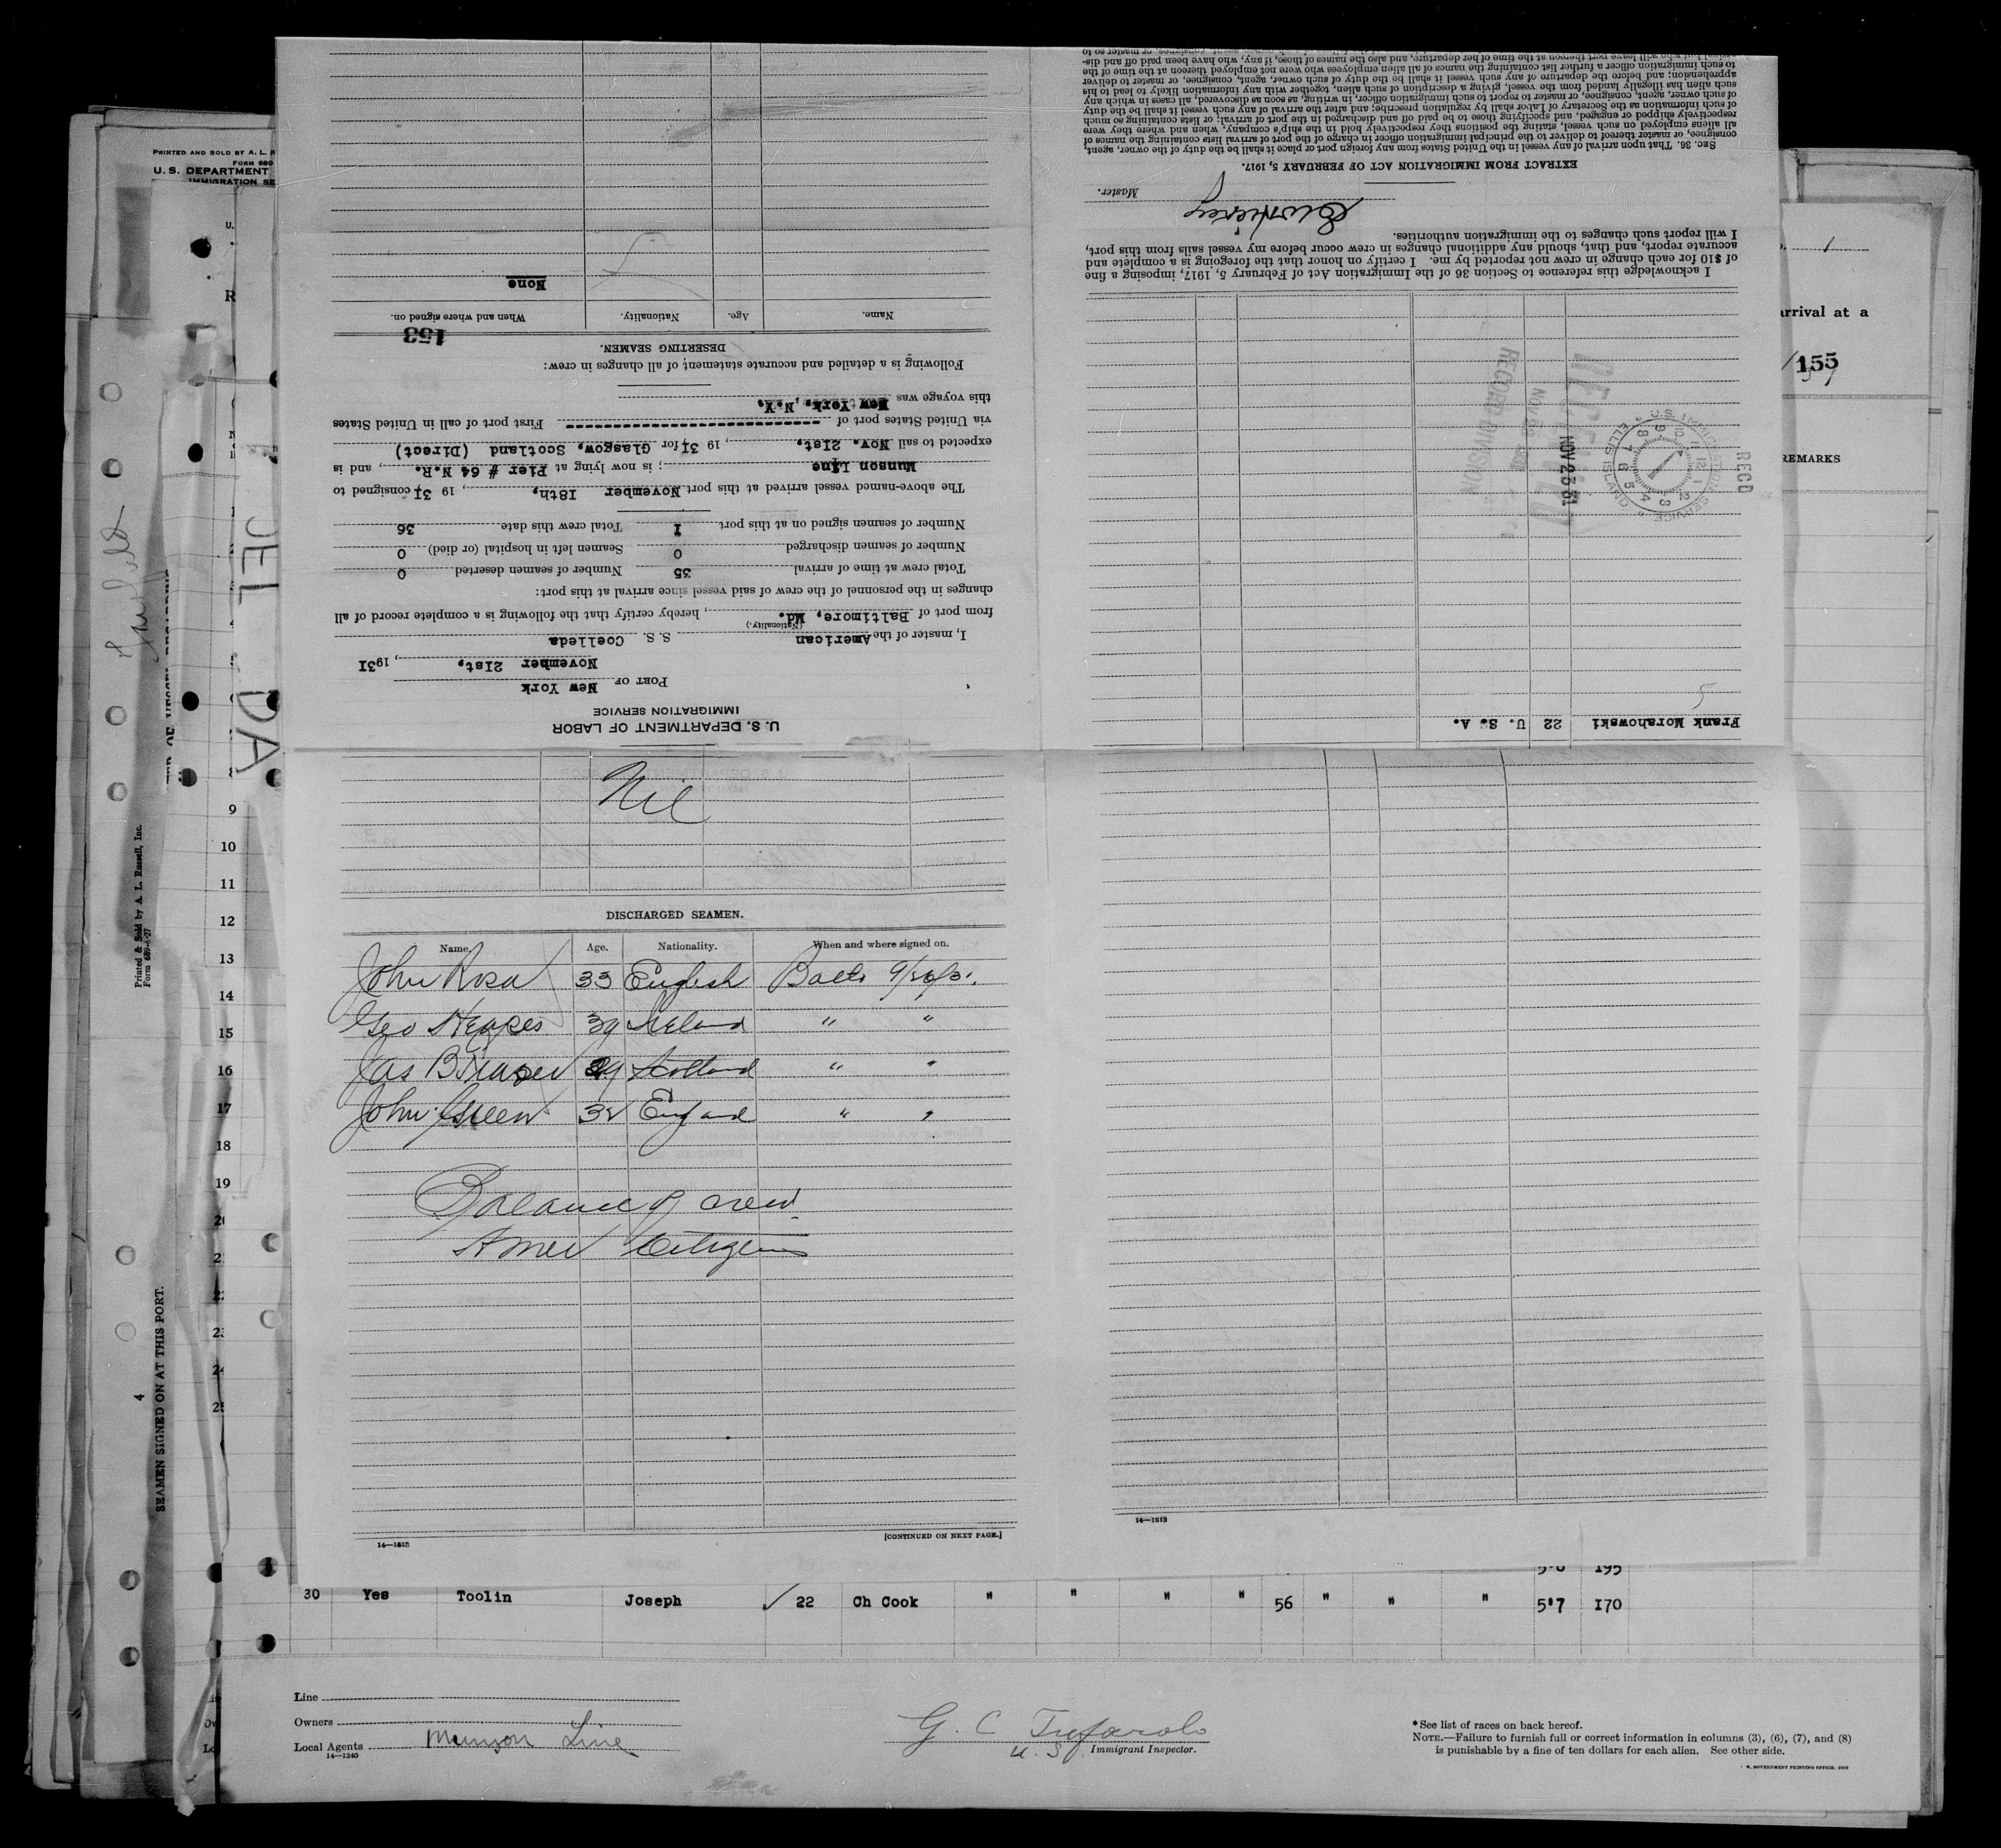 U. S. DEPARTMENT OF LABOR
IMMIGRATION SERVICE
PORT OF New York
November 2Ist, , 193I
I, master of the American S. S. Coelleda
(Nationality.)
from port of Baltimore, Md. , hereby certify that the following is a complete record of all
changes in the personnel of the crew of said vessel since arrival at this port:
Total crew at time of arrival 35 Number of seamen deserted 0
Number of seamen discharged 0 Seamen left in hospital (or died) 0
Number of seamen signed on at this port I Total crew this date 36
The above-named vessel arrived at this port November I8th, , 19 3I consigned to
Munson Line ; is now lying at Pier # 64 N.R. , and is
expected to sail Nov. 2Ist, , 19 3I for Glasgow, Scotland (Direct)
via United States port of ---------- First port of call in United States
this voyage was New York, N.Y.
Following is a detailed and accurate statement of all changes in crew:
DESERTING SEAMEN.
153
Name. Age. Nationality. When and where signed on.
None
Frank Morahowski 22 U. S. A.
REC'D
U.S. IMMIGRATION SERVICE
ELLIS ISLAND
NOV 23 31
RECORD DIVISION
I acknowledge this reference to Section 36 of the Immigration Act of February 5, 1917, imposing a fine
of $10 for each change in crew not reported by me. I certify on honor that the foregoing is a complete and
accurate report, and that, should any additional changes in crew occur before my vessel sails from this port,
I will report such changes to the immigration authorities.
Master.
EXTRACT FROM IMMIGRATION ACT OF FEBRUARY 5, 1917.
SEC. 36. That upon arrival of any vessel in the United States from any foreign port or place it shall be the duty of the owner, agent,
consignee, or master thereof to deliver to the principal immigration officer in charge of the port of arrival lists containing the names of
all aliens employed on such vessel, stating the positions they respectively hold in the ship's company, when and where they were
respectively shipped or engaged, and specifying those to be paid off and discharged in the port of arrival; or lists containing so much
of such information as the Secretary of Labor shall by regulation prescribe; and after the arrival of any such vessel it shall be the duty
of such owner, agent, consignee, or master to report to such immigration officer, in writing, as soon as discovered, all cases in which any
such alien has illegally landed from the vessel, giving a description of such alien, together with any information likely to lead to his
apprehension; and before the departure of any such vessel it shall be the duty of such owner, agent, consignee, or master to deliver
to such immigration officer a further list containing the names of all alien employees who were not employed thereon at the time of the
arrival but who will leave port thereon at the time of her departure, and also the names of those, if any, who have been paid off and dis-
Nil
DISCHARGED SEAMEN.
Name. Age. Nationality. When and where signed on.
John Rosa 33 English Balto 9/26/31.
Geo Heapes 39 Ireland " "
Jas B Fraser 29 Scotland " "
John Green 32 England " "
Balance of crew
Amer Citizens
14—1613
[CONTINUED ON NEXT PAGE.]
14—1613
PRINTED AND SOLD BY A. L. R
FORM 680
U. S. DEPARTMENT
IMMIGRATION SE
U.
R
DEL
DA
Printed & Sold by A. L. Russell, Inc.
Form 689-6-27
SEAMEN SIGNED ON AT THIS PORT.
4
8
9
10
11
12
13
14
15
16
17
18
19
1
arrival at a
155
REMARKS
195
30 Yes Toolin Joseph ✓ 22 Ch Cook " " " " 56 " " " 5'7 I70
Line
Owners
Local Agents Munson Line
14—1240
G. C. Tufarolo
U. S. Immigrant Inspector.
*See list of races on back hereof.
NOTE.—Failure to furnish full or correct information in columns (3), (6), (7), and (8)
is punishable by a fine of ten dollars for each alien. See other side.